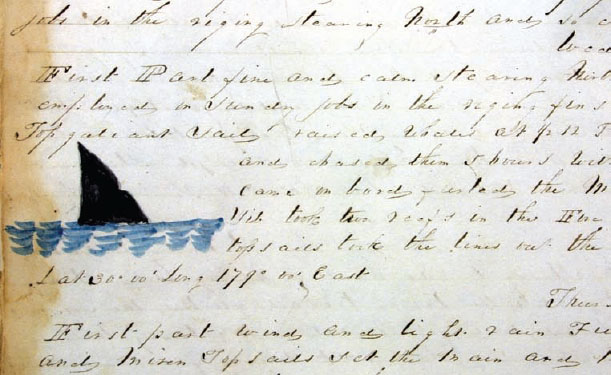 jobs in the riging stearing North and so e
First Part fine and calm stearing Nort
employed in sundry jobs in the riging fins
Topgallant Sails raised whales at 12
and chased them 5 hours wit
came on bord furled the M
took two reefs in the Fore
topsails took the lines out the
Lat 30° 00' Long 179° 00' East
Thurs
First part wind and light rain
and Mizen Topsails set the Main and